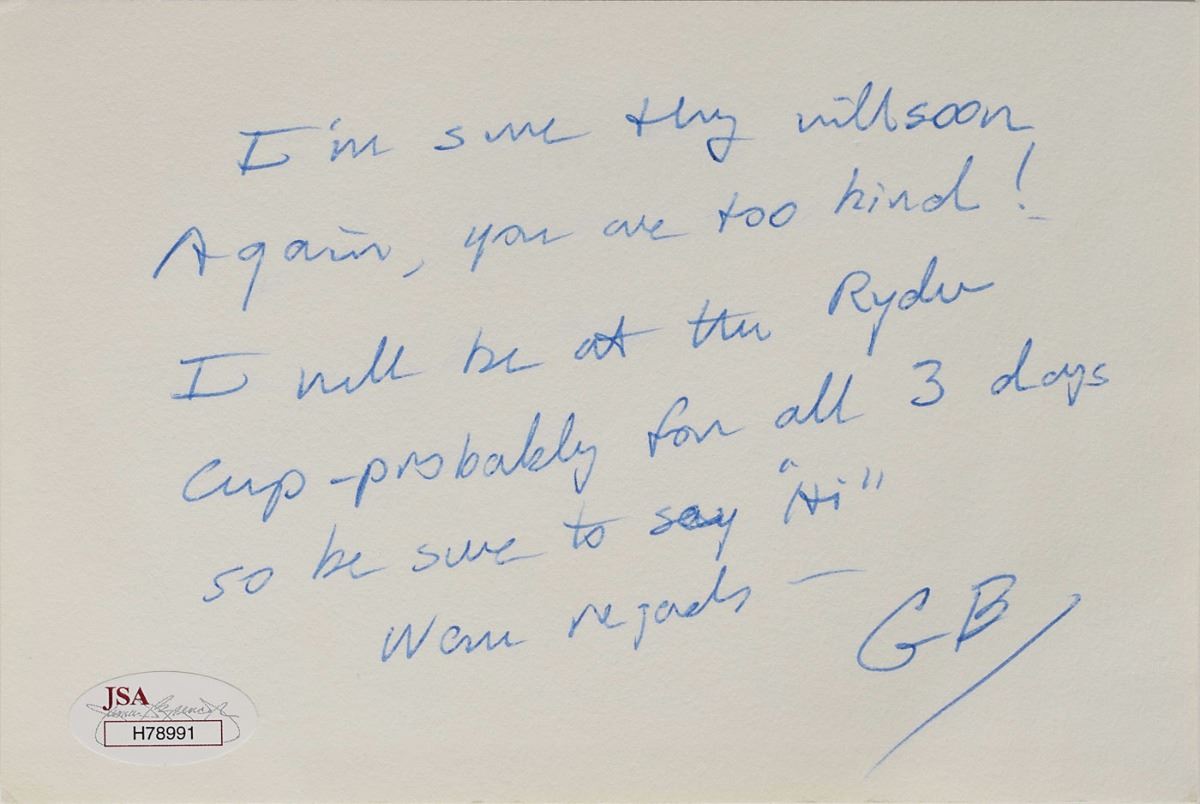 I'm sure they will soon
Again, you are too kind!
I will be at the Ryder
Cup - probably for all 3 days
so be sure to say "Hi"
Warm regards —
GB
JSA
H78991